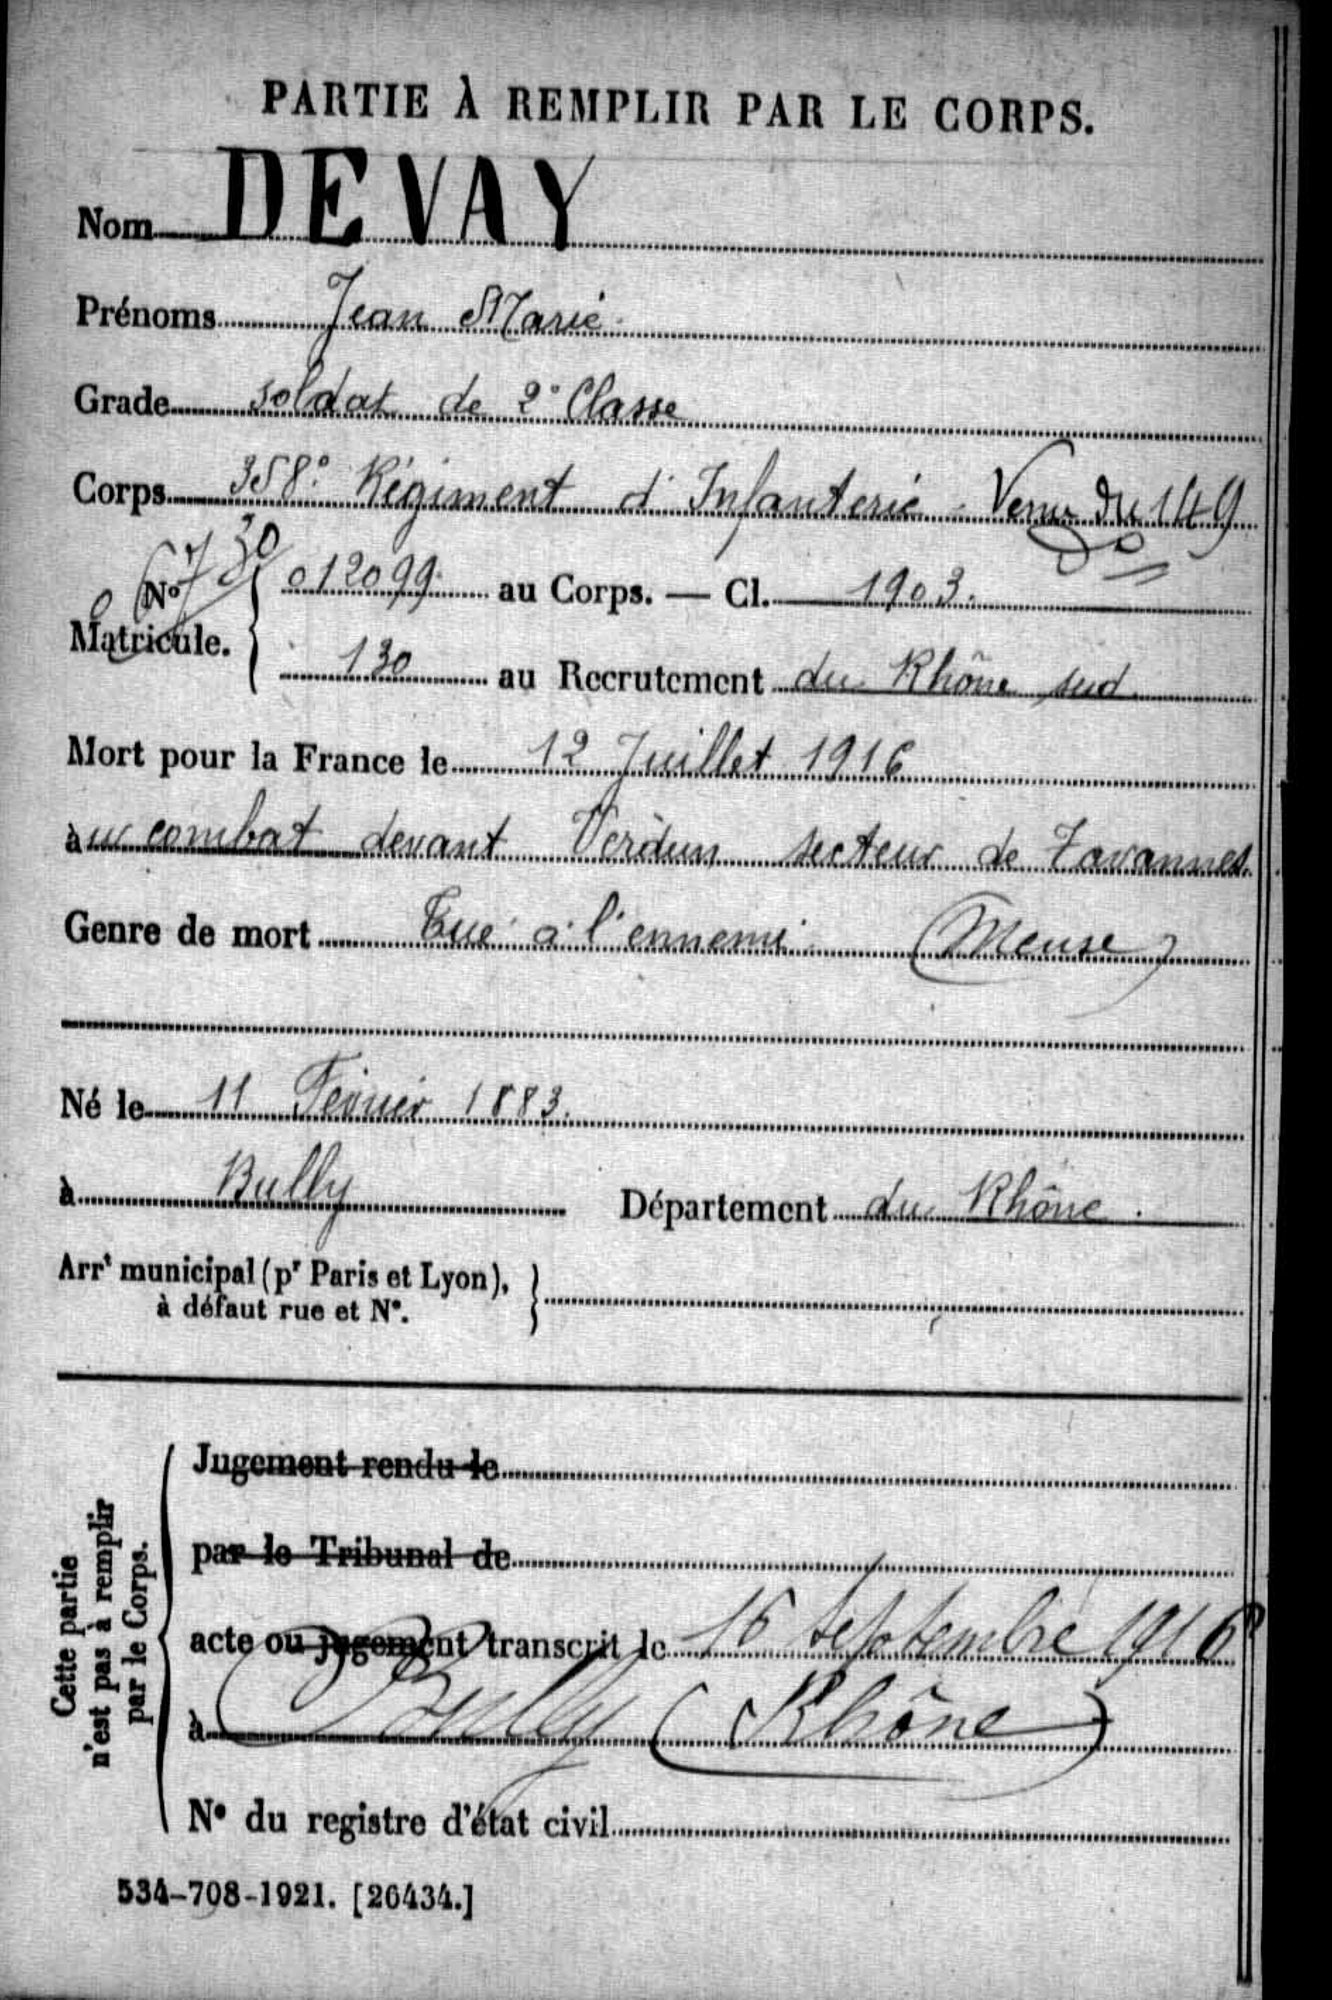 PARTIE À REMPLIR PAR LE CORPS.
Nom DEVAY
Prénoms Jean Marie
Grade soldat de 2e Classe
Corps 358e Régiment d'Infanterie - Venu du 149
730
No Matricule. { 012099 au Corps. — Cl. 1903.
130 au Recrutement du Rhône sud
Mort pour la France le 12 Juillet 1916
à u combat devant Verdun secteur de Tavannes
Genre de mort Tué à l'ennemi (Meuse)
Né le 11 Février 1883.
à Bully Département du Rhône.
Arrt municipal (pr Paris et Lyon), }
à défaut rue et No.
Cette partie
n'est pas à remplir
par le Corps.
Jugement rendu le
par le Tribunal de
acte ou jugement transcrit le 16 septembre 1916
à Bully (Rhône)
No du registre d'état civil
534-708-1921. [26434.]